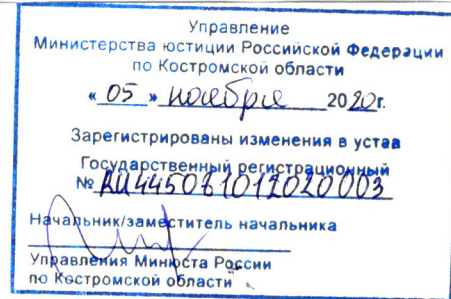 Управление
Министерства юстиции Российской Федерации
по Костромской области
«05» ноября 2020г.
Зарегистрированы изменения в устав
Государственный регистрационный
№ RU445061012020003
Начальник/заместитель начальника
Управления Минюста России
по Костромской области